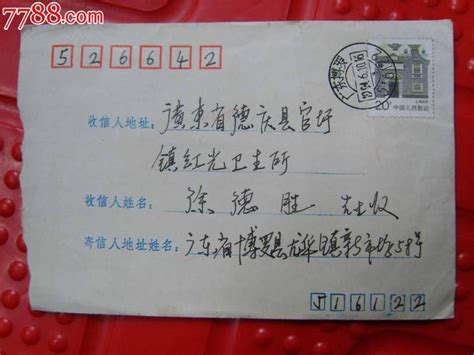 7788.com
526642
收信人地址: 廣東省德庆县官圩
镇红光卫生所
收信人姓名: 徐德胜 先生收
寄信人地址姓名: 广东省博罗县龙华镇新市场58号
516122
20分 中国人民邮政
广东博罗